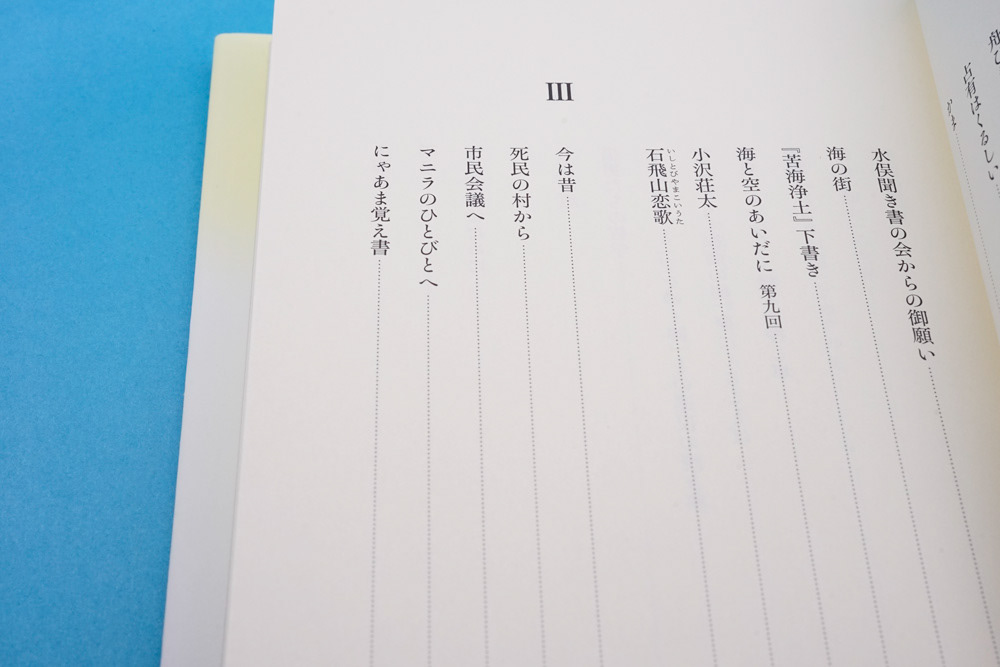 水俣聞き書の会からの御願い
海の街
『苦海浄土』下書き
海と空のあいだに 第九回
小沢荘太
石飛山恋歌
いしとびやまこいうた
III
今は昔
死民の村から
市民会議へ
マニラのひとびとへ
にゃあま覚え書